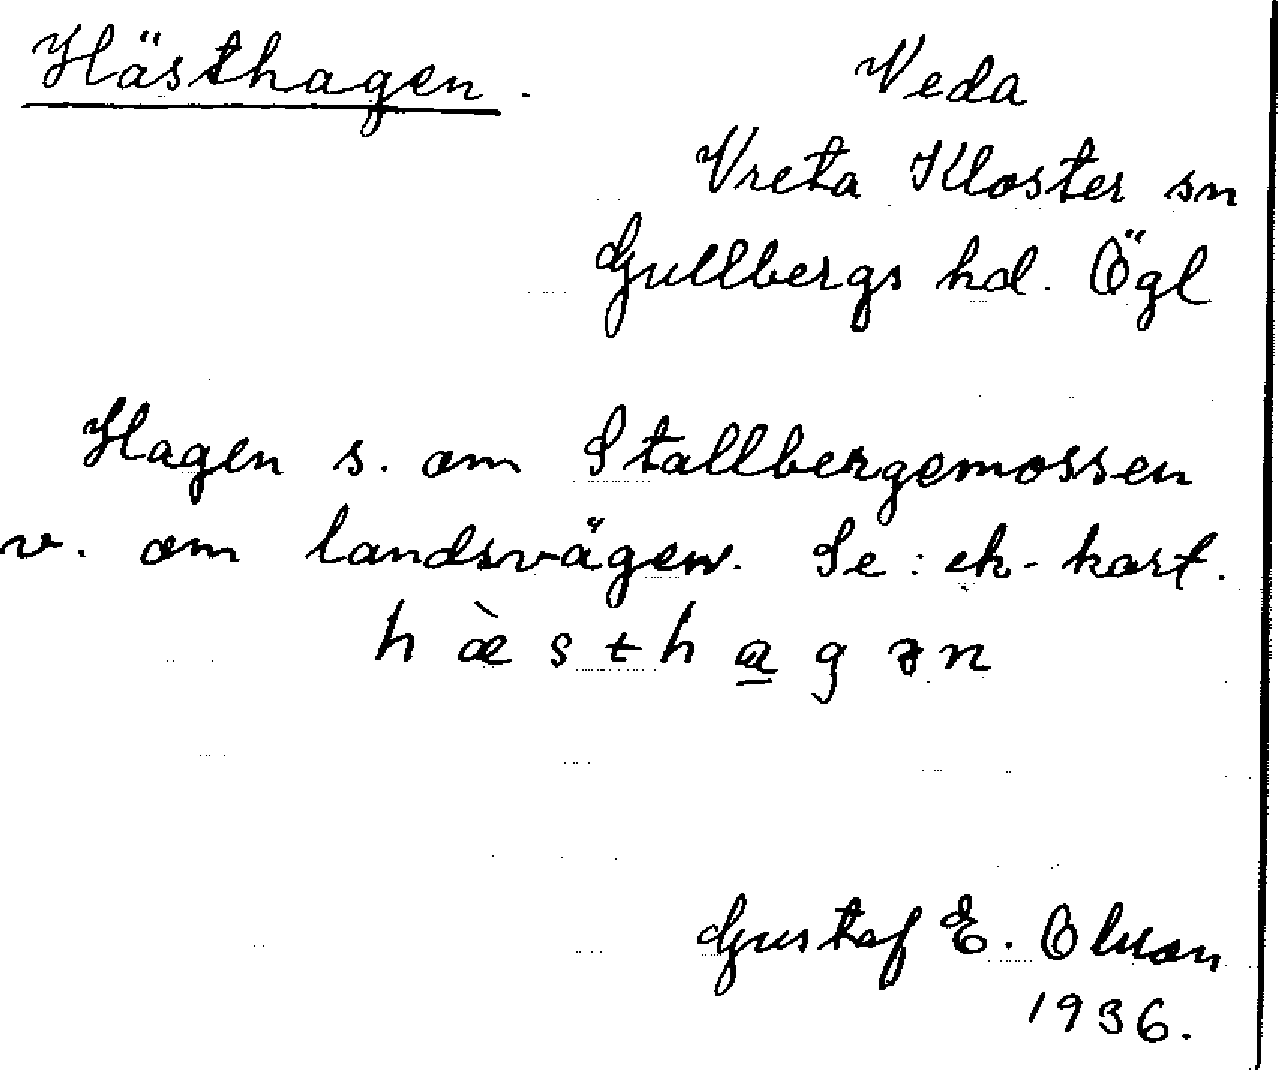 Hästhagen.
Veda
Vreta Kloster sn
Gullbergs hd. Ögl
Hagen s. om Stallbergemossen
v. om landsvägen. Se: ek-kart.
hæ̀stha̲gən
Gustaf E. Olsson
1936.